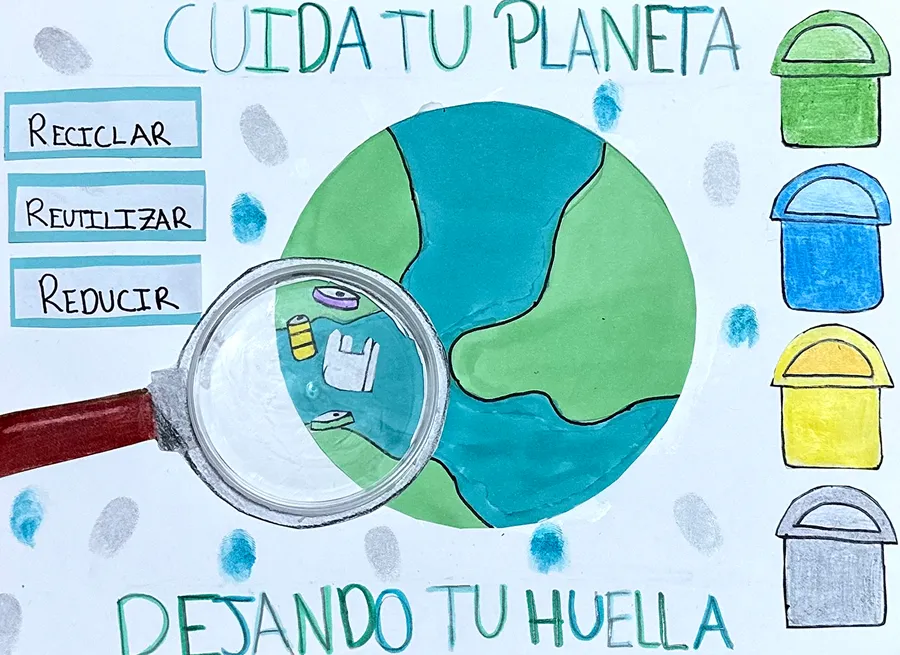 CUIDA TU PLANETA
RECICLAR
REUTILIZAR
REDUCIR
DEJANDO TU HUELLA